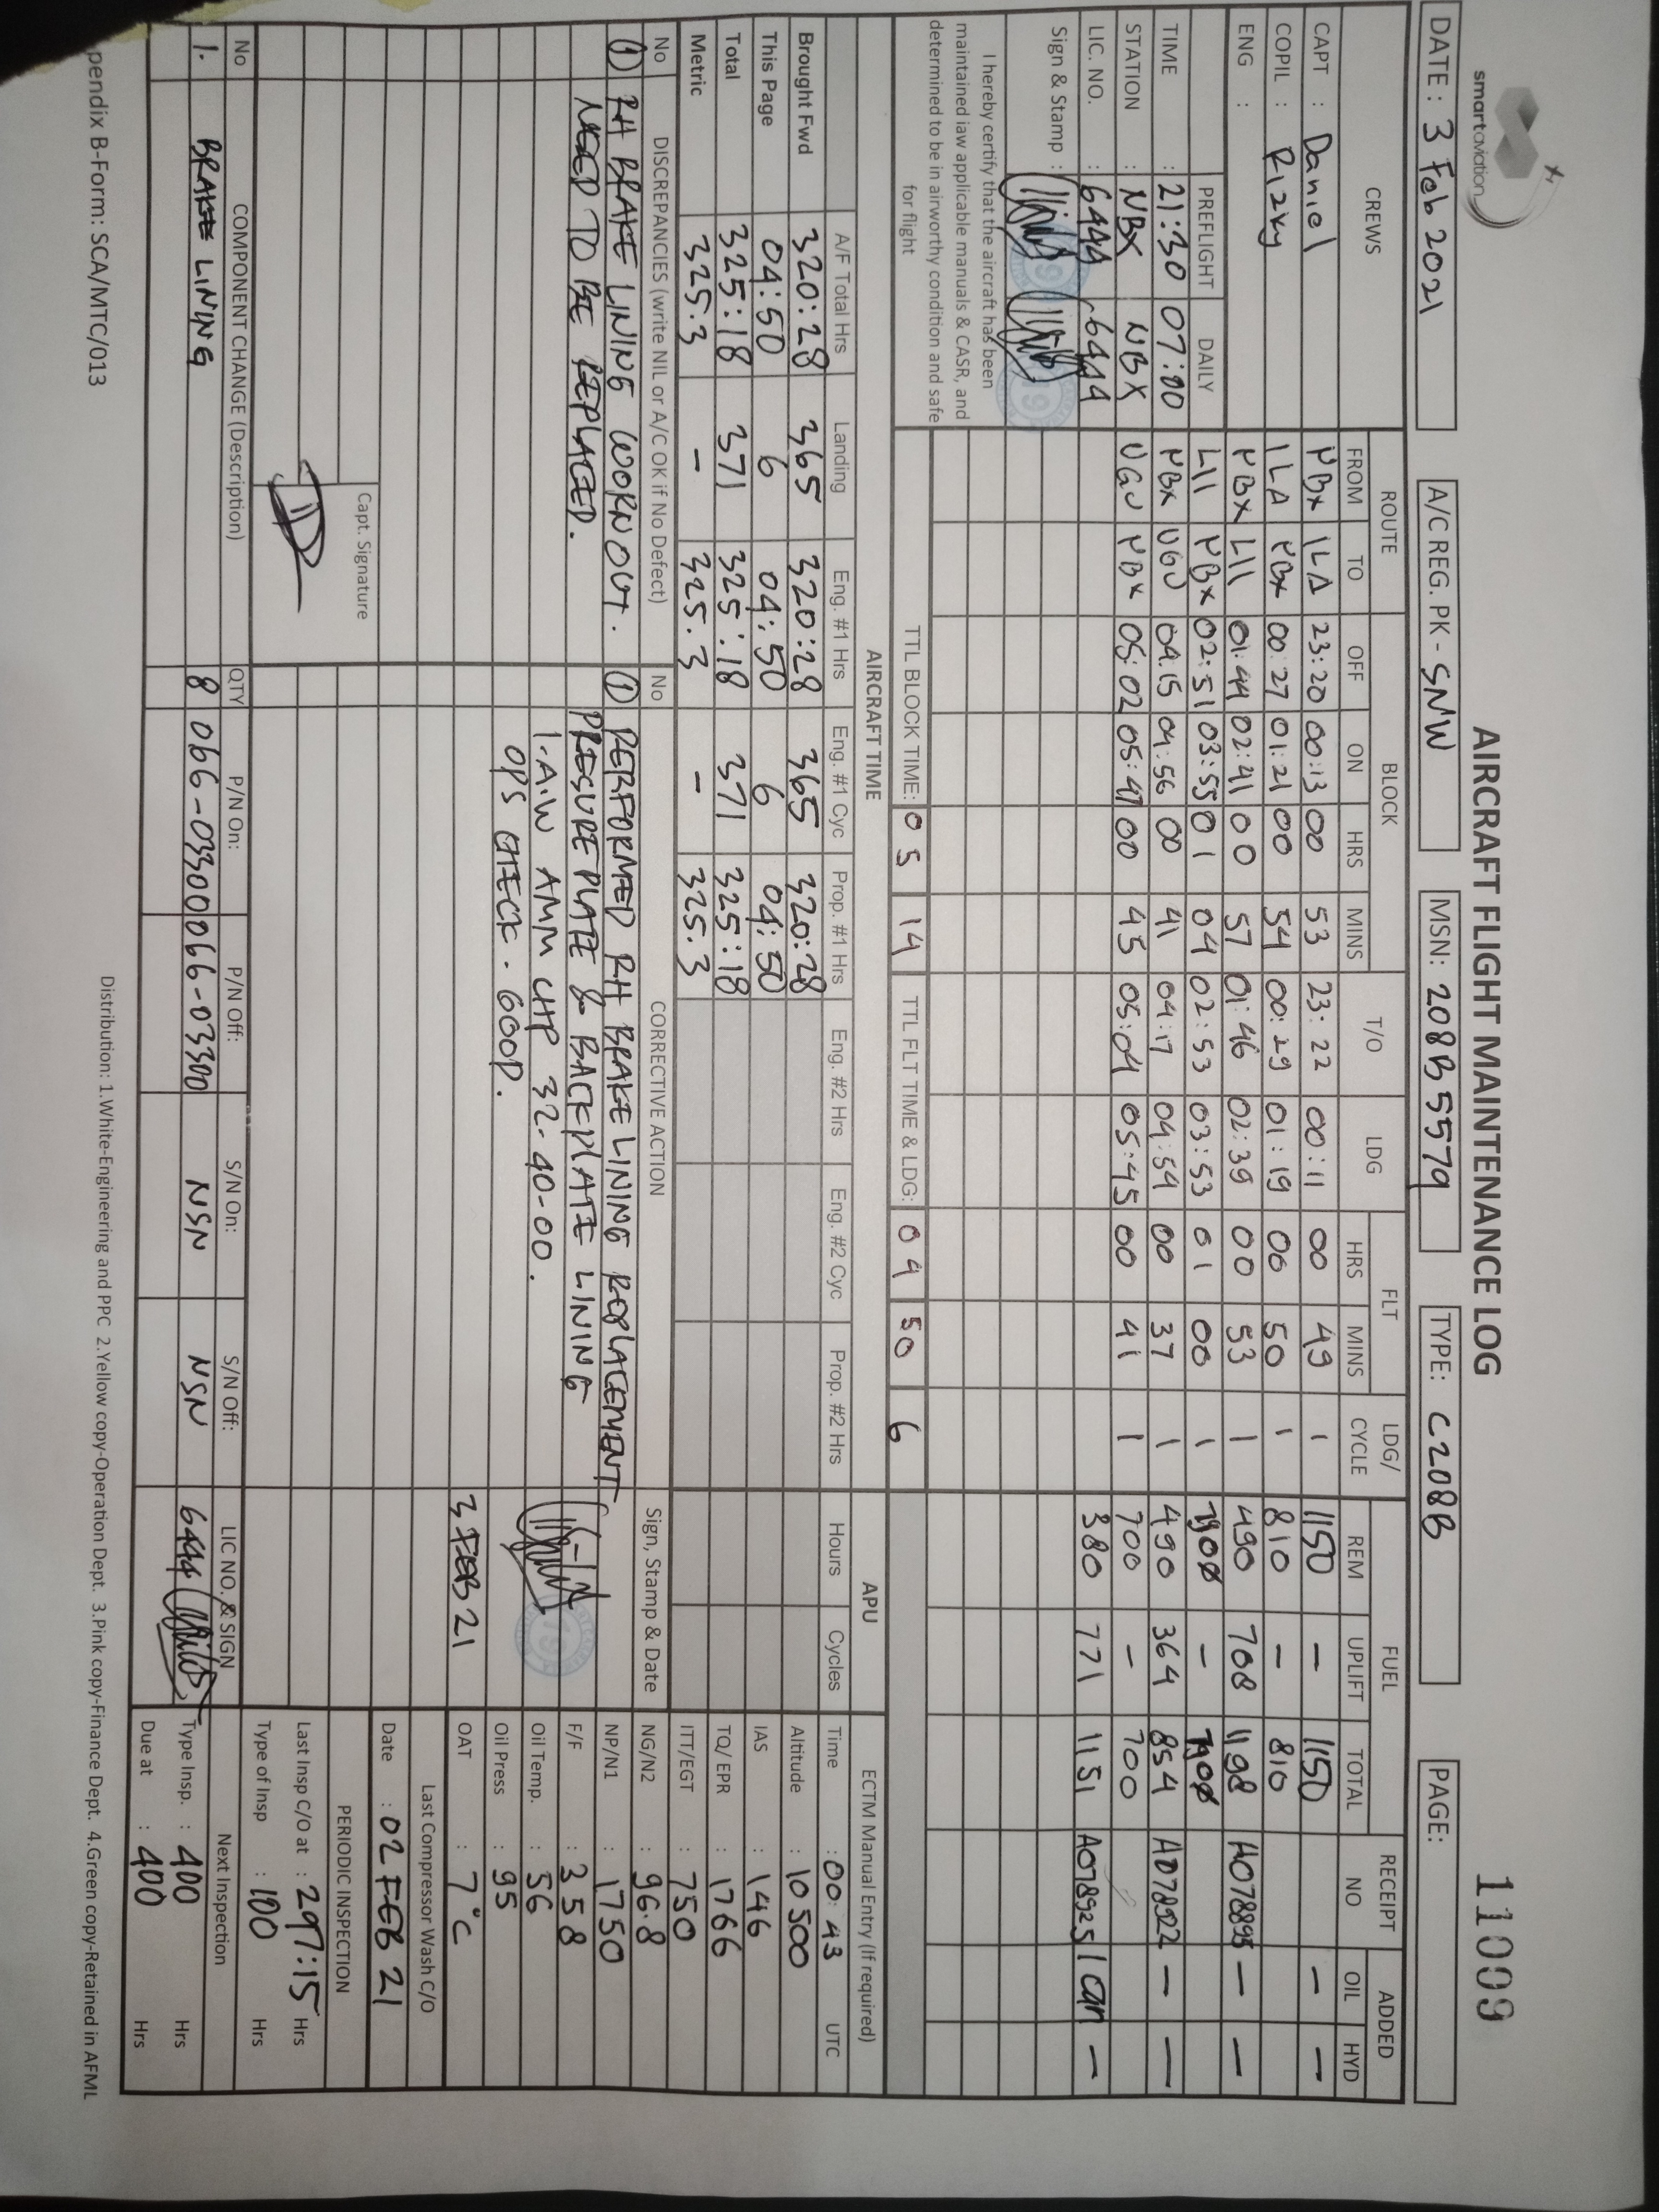 smartaviation
AIRCRAFT FLIGHT MAINTENANCE LOG
11009
DATE : 3 Feb 2021
A/C REG. PK - SNW
MSN: 208B5579
TYPE: C208B
PAGE:
CREWS
ROUTE
BLOCK
T/O
LDG
FLT
LDG/ CYCLE
FUEL
RECEIPT NO
ADDED
FROM TO OFF ON HRS MINS HRS MINS REM UPLIFT TOTAL OIL HYD
CAPT : Daniel
COPIL : Rizky
ENG :
NBX ILA 23:20 00:13 00 53 23:22 00:11 00 49 1 1150 – 1150 – –
ILA NBX 00:27 01:21 00 54 00:29 01:19 00 50 1 810 – 810
NBX LII 01:44 02:41 00 57 01:46 02:39 00 53 1 490 708 1198 A078895 – –
LII NBX 02:51 03:55 01 04 02:53 03:53 01 00 1 –
NBX UGU 04:15 04:56 00 41 04:17 04:54 00 37 1 490 364 854 A078922 – –
UGU NBX 05:02 05:47 00 45 05:04 05:45 00 41 1 700 – 700
380 771 1151 A078925 1 can –
PREFLIGHT DAILY
TIME : 21:30 07:00
STATION : NBX NBX
LIC. NO. : 6444 6444
Sign & Stamp :
I hereby certify that the aircraft has been
maintained iaw applicable manuals & CASR, and
determined to be in airworthy condition and safe
for flight
TTL BLOCK TIME: 05 14
TTL FLT TIME & LDG: 04 50 6
AIRCRAFT TIME
APU
ECTM Manual Entry (If required)
A/F Total Hrs Landing Eng. #1 Hrs Eng. #1 Cyc Prop. #1 Hrs Eng. #2 Hrs Eng. #2 Cyc Prop. #2 Hrs Hours Cycles
Brought Fwd 320:28 365 320:28 365 320:28
This Page 04:50 6 04:50 6 04:50
Total 325:18 371 325:18 371 325:18
Metric 325.3 – 325.3 – 325.3
Time : 00:43 UTC
Altitude : 10500
IAS : 146
TQ/ EPR : 1766
ITT/EGT : 750
NG/N2 : 96.8
NP/N1 : 1750
F/F : 358
Oil Temp. : 56
Oil Press : 95
OAT : 7°C
Last Compressor Wash C/O
Date : 02 FEB 21
PERIODIC INSPECTION
Last Insp C/O at : 297:15 Hrs
Type of Insp : 100 Hrs
Next Inspection
Type Insp. : 400 Hrs
Due at : 400 Hrs
No DISCREPANCIES (write NIL or A/C OK if No Defect)
① RH BRAKE LINING WORN OUT.
NEED TO BE REPLACED.
Capt. Signature
No CORRECTIVE ACTION
Sign, Stamp & Date
① PERFORMED RH BRAKE LINING REPLACEMENT
PRESSURE PLATE & BACKPLATE LINING
I.A.W AMM CHP 32-40-00.
OPS CHECK - GOOD.
3 FEB 21
No COMPONENT CHANGE (Description) QTY P/N On: P/N Off: S/N On: S/N Off: LIC NO. & SIGN
1. BRAKE LINING 8 066-03300 066-03300 NSN NSN 6444
pendix B-Form: SCA/MTC/013
Distribution: 1.White-Engineering and PPC 2.Yellow copy-Operation Dept. 3.Pink copy-Finance Dept. 4.Green copy-Retained in AFML